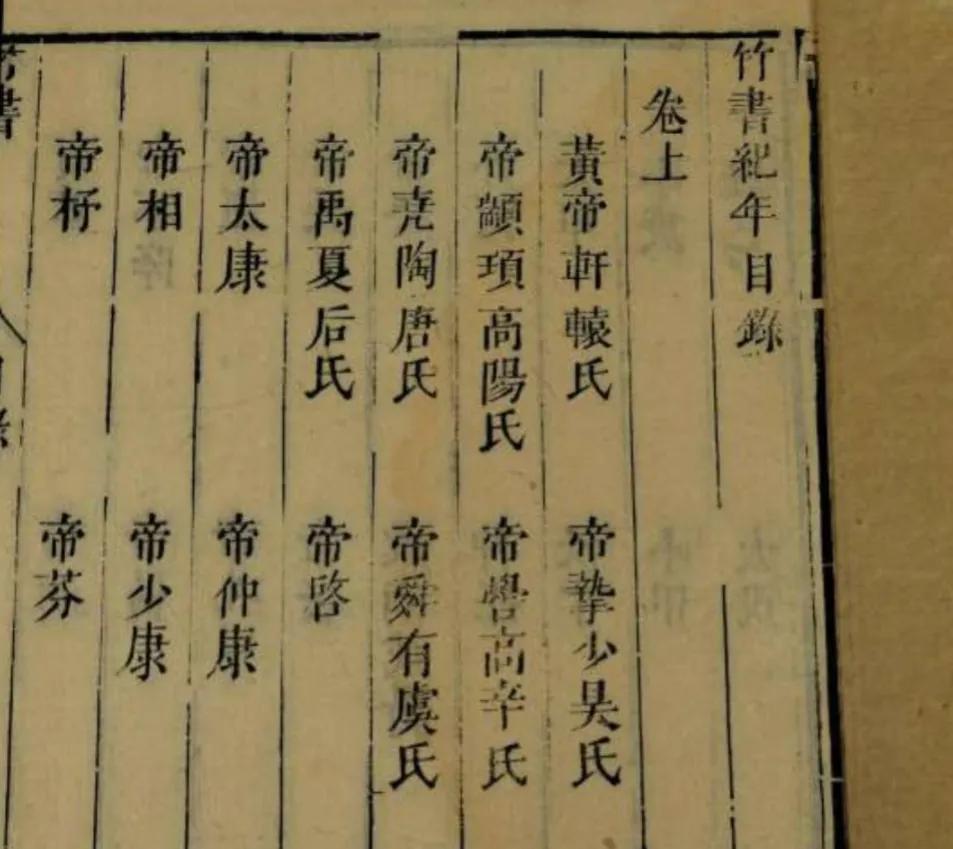 竹書紀年目錄
卷上
黃帝軒轅氏 帝摯少昊氏
帝顓頊高陽氏 帝嚳高辛氏
帝堯陶唐氏 帝舜有虞氏
帝禹夏后氏 帝啓
帝太康 帝仲康
帝相 帝少康
帝杼 帝芬
竹書